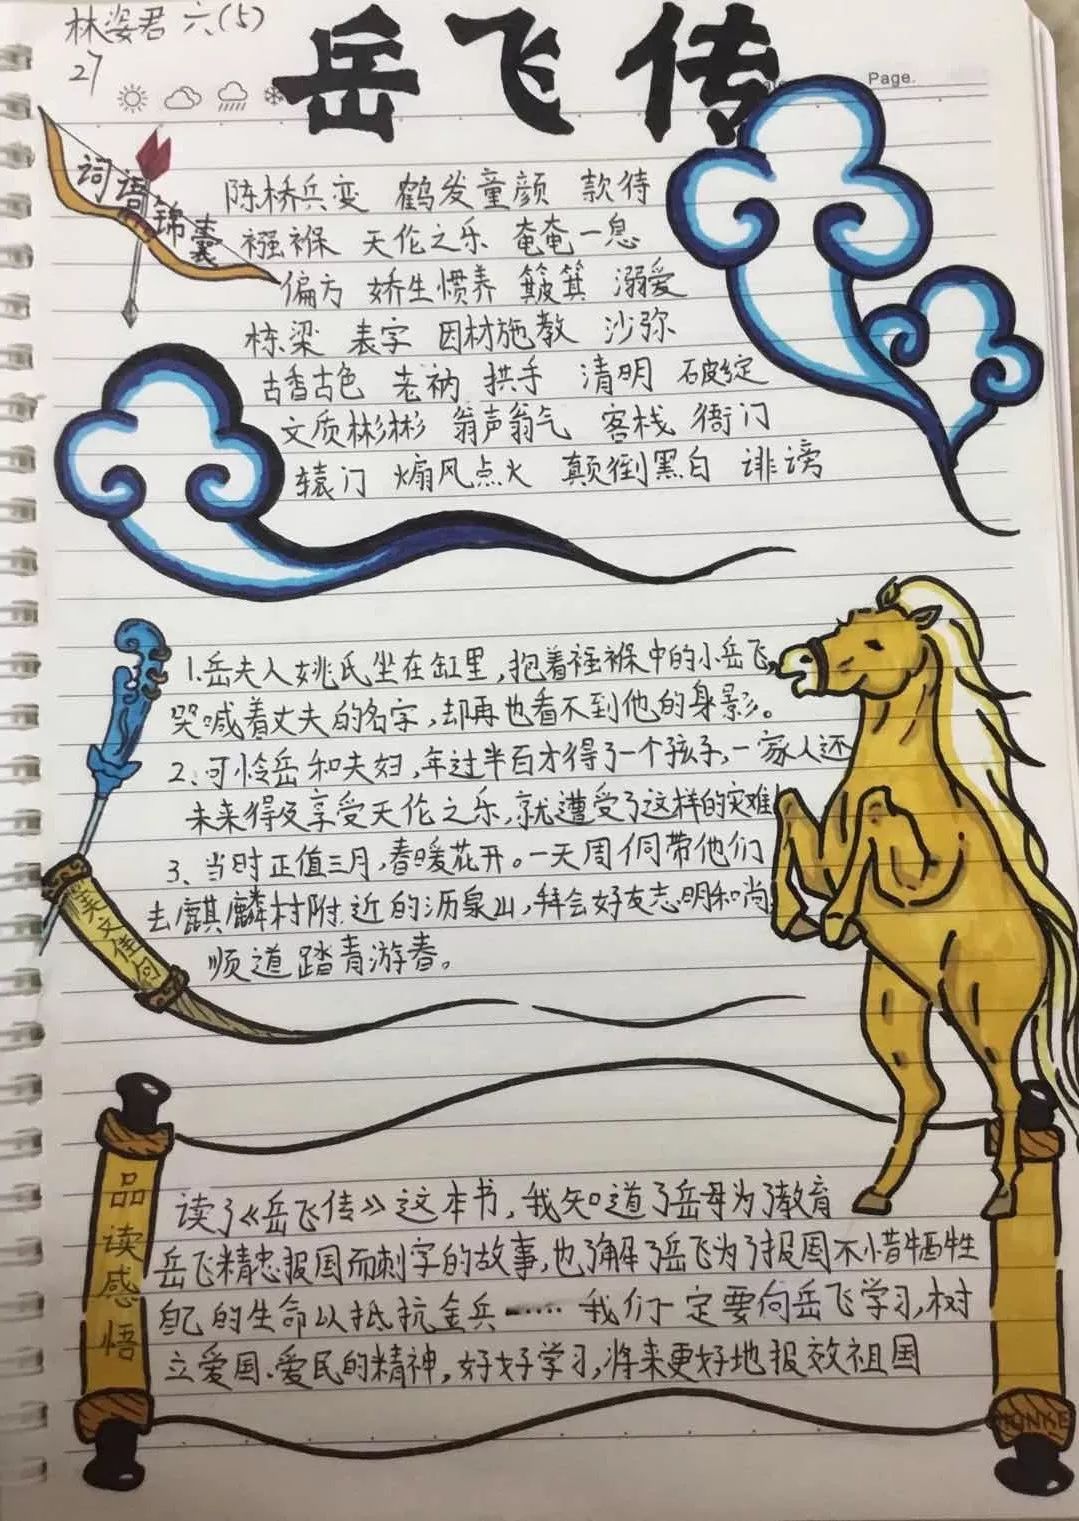 林姿君 六(5)
27
Page.
岳飞传
词语锦囊
陈桥兵变 鹤发童颜 款待
襁褓 天伦之乐 奄奄一息
偏方 娇生惯养 簸箕 溺爱
栋梁 表字 因材施教 沙弥
古香古色 老衲 拱手 清明 破绽
文质彬彬 翁声翁气 客栈 衙门
辕门 煽风点火 颠倒黑白 诽谤
美文佳句
1.岳夫人姚氏坐在缸里,抱着襁褓中的小岳飞,
哭喊着丈夫的名字,却再也看不到他的身影。
2、可怜岳和夫妇,年过半百才得了一个孩子,一家人还
未来得及享受天伦之乐,就遭受了这样的灾难!
3、当时正值三月,春暖花开。一天周侗带他们
去麒麟村附近的沥泉山,拜会好友志明和尚,
顺道踏青游春。
品读感悟
读了《岳飞传》这本书,我知道了岳母为了教育
岳飞精忠报国而刺字的故事,也了解了岳飞为了报国不惜牺牲
自己的生命以抵抗金兵……我们一定要向岳飞学习,树
立爱国、爱民的精神,好好学习,将来更好地报效祖国